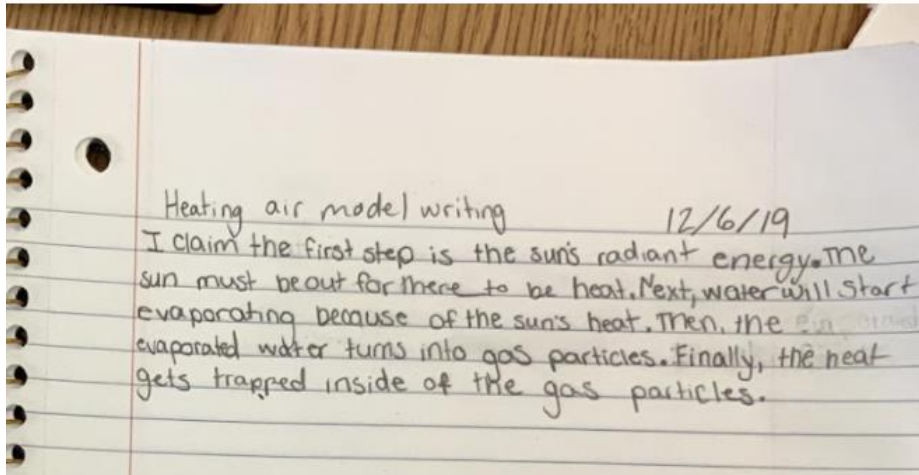 Heating air model writing 12/6/19
I claim the first step is the sun's radiant energy. The
sun must be out for there to be heat. Next, water will start
evaporating because of the sun's heat. Then, the
evaporated water turns into gas particles. Finally, the heat
gets trapped inside of the gas particles.